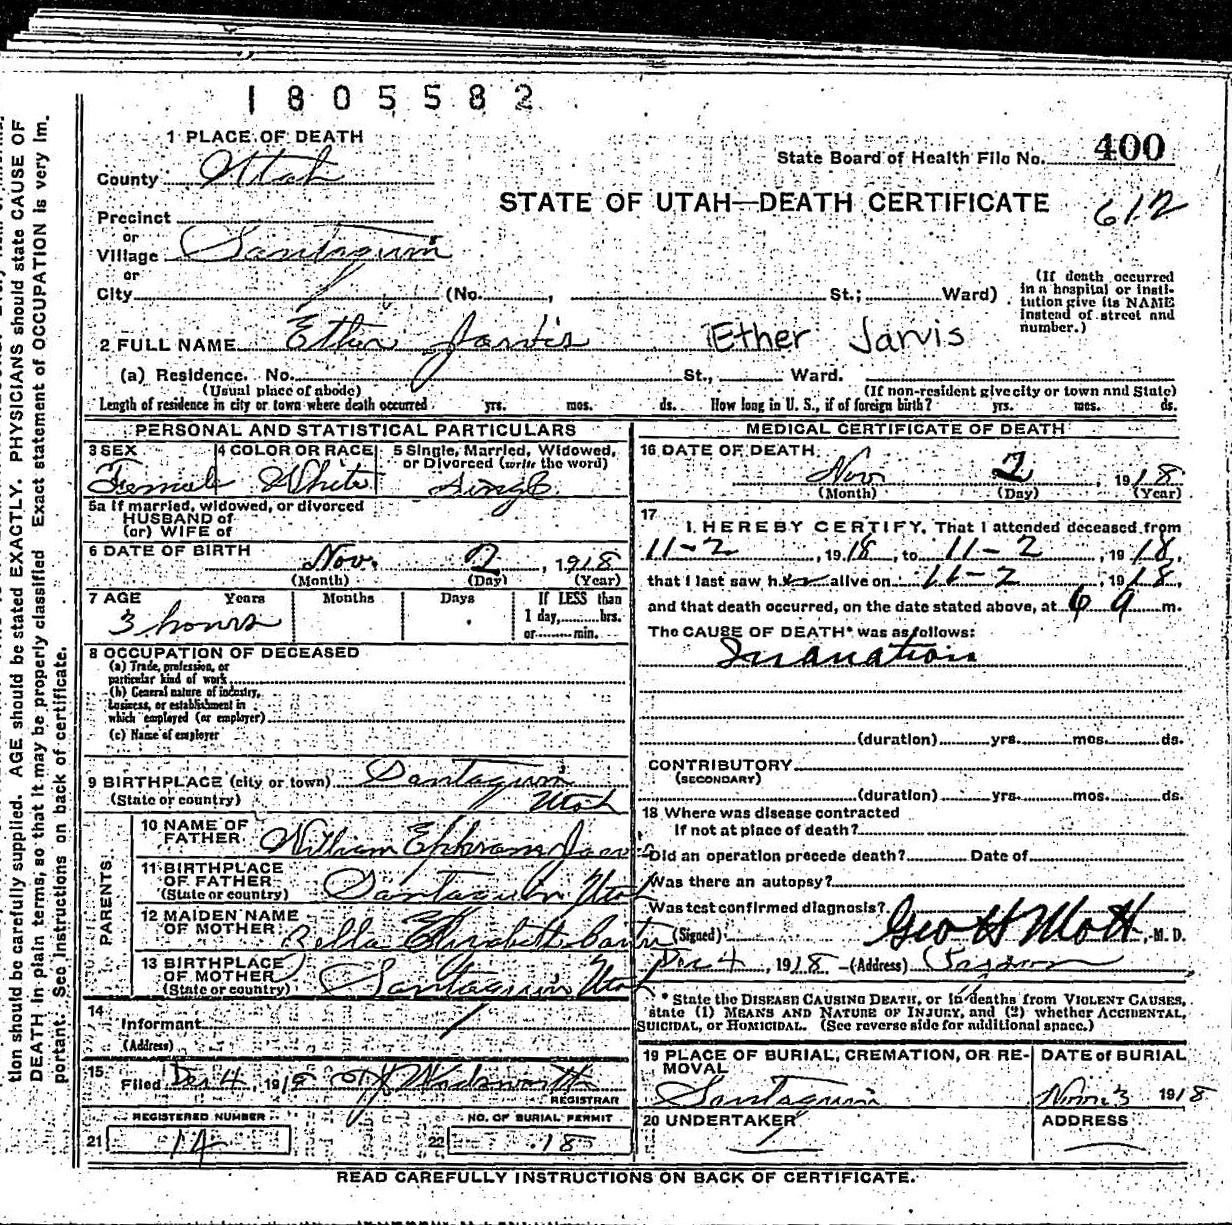 1805582
1 PLACE OF DEATH
County Utah
State Board of Health File No. 400
STATE OF UTAH—DEATH CERTIFICATE 612
Precinct
or
Village Santaquin
or
City (No. , St.; Ward)
(If death occurred
in a hospital or insti-
tution give its NAME
instead of street and
number.)
2 FULL NAME Ether Jarvis Ether Jarvis
(a) Residence. No. St., Ward.
(Usual place of abode) (If non-resident give city or town and State)
Length of residence in city or town where death occurred yrs. mos. ds. How long in U. S., if of foreign birth? yrs. mos. ds.
PERSONAL AND STATISTICAL PARTICULARS
3 SEX 4 COLOR OR RACE 5 Single, Married, Widowed,
or Divorced (write the word)
Female White Single
5a If married, widowed, or divorced
HUSBAND of
(or) WIFE of
6 DATE OF BIRTH
Nov. 2, 1918
(Month) (Day) (Year)
7 AGE Years Months Days If LESS than
1 day, hrs.
or min.
3 hours
8 OCCUPATION OF DECEASED
(a) Trade, profession, or
particular kind of work
(b) General nature of industry,
business, or establishment in
which employed (or employer)
(c) Name of employer
9 BIRTHPLACE (city or town) Santaquin
(State or country) Utah
PARENTS
10 NAME OF
FATHER William Ephraim
11 BIRTHPLACE
OF FATHER
(State or country) Santaquin Utah
12 MAIDEN NAME
OF MOTHER Bella Elizabeth
13 BIRTHPLACE
OF MOTHER
(State or country) Santaquin Utah
14
Informant
(Address)
15
Filed Dec 4, 1918 Wadsworth
REGISTRAR
REGISTERED NUMBER NO. OF BURIAL PERMIT
21 14 22 18
MEDICAL CERTIFICATE OF DEATH
16 DATE OF DEATH
Nov 2 1918
(Month) (Day) (Year)
17
I HEREBY CERTIFY, That I attended deceased from
11-2, 1918, to 11-2, 1918,
that I last saw her alive on 11-2, 1918,
and that death occurred, on the date stated above, at 6 a m.
The CAUSE OF DEATH* was as follows:
Inanation
(duration) yrs. mos. ds.
CONTRIBUTORY
(SECONDARY)
(duration) yrs. mos. ds.
18 Where was disease contracted
If not at place of death?
Did an operation precede death? Date of
Was there an autopsy?
Was test confirmed diagnosis?
(Signed) Geo H Mott, M. D.
Dec 4, 1918 (Address) Payson
* State the DISEASE CAUSING DEATH, or in deaths from VIOLENT CAUSES,
state (1) MEANS AND NATURE OF INJURY, and (2) whether ACCIDENTAL,
SUICIDAL, or HOMICIDAL. (See reverse side for additional space.)
19 PLACE OF BURIAL, CREMATION, OR RE-
MOVAL
Santaquin
DATE of BURIAL
Nov 3 1918
20 UNDERTAKER ADDRESS
READ CAREFULLY INSTRUCTIONS ON BACK OF CERTIFICATE.
tion should be carefully supplied. AGE should be stated EXACTLY. PHYSICIANS should state CAUSE OF
DEATH in plain terms, so that it may be properly classified. Exact statement of OCCUPATION is very im-
portant. See instructions on back of certificate.